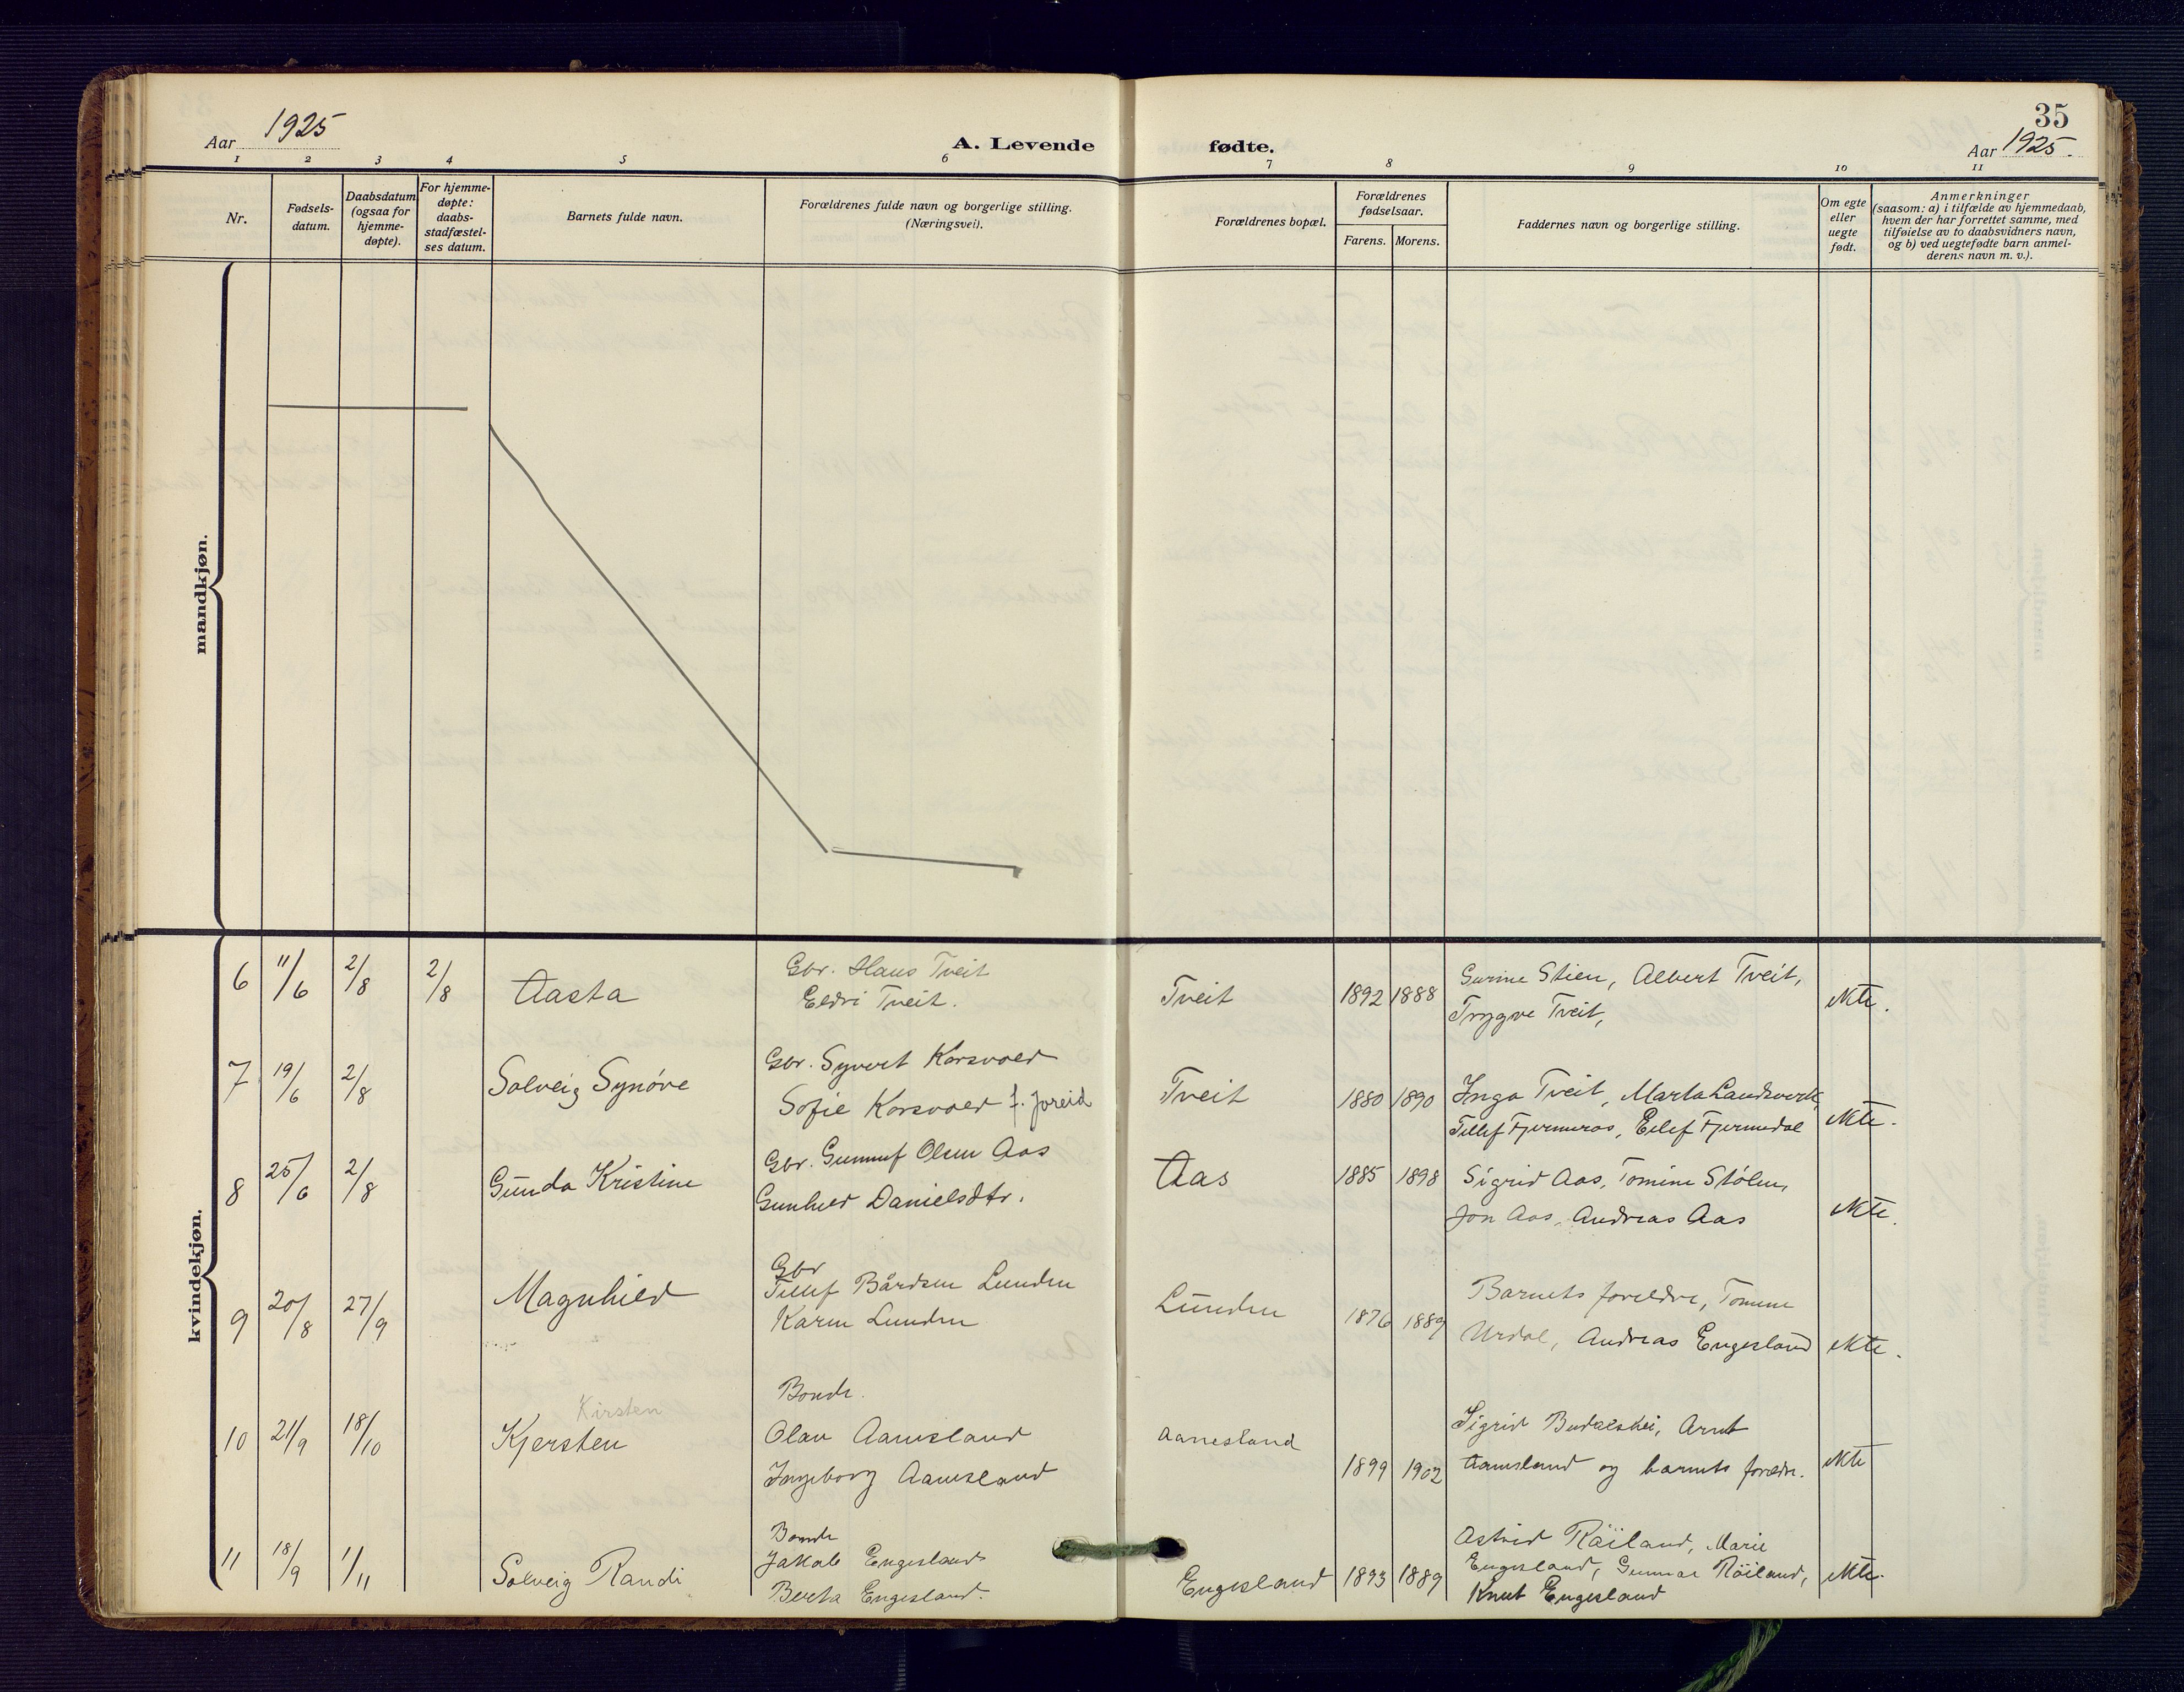 35
Aar 1925
A. Levende fødte.
Aar 1925.
1 2 3 4 5 6 7 8 9 10 11
Nr.
Fødsels-
datum.
Daabsdatum
(ogsaa for
hjemme-
døpte).
For hjemme-
døpte:
daabs-
stadfæstel-
ses datum.
Barnets fulde navn.
Forældrenes fulde navn og borgerlige stilling.
(Næringsvei).
Forældrenes bopæl.
Forældrenes
fødselsaar.
Farens. Morens.
Faddernes navn og borgerlige stilling.
Om egte
eller
uegte
født.
Anmerkninger
(saasom: a) i tilfælde av hjemmedaab,
hvem der har forrettet samme, med
tilføielse av to daabsvidners navn,
og b) ved uegtefødte barn anmel-
derens navn m. v.).
mandkjøn.
kvindekjøn.
6 11/6 2/8 2/8 Aasta
Gbr. Hans Tveit
Eldri Tveit.
Tveit 1892 1888
Gurine Stien, Albert Tveit,
Trygve Tveit,
ekte.
7 19/6 2/8 Solveig Synøve
Gbr. Syvert Korsvold
Sofie Korsvold f. Joreid
Tveit 1880 1890
Inga Tveit, Marta Landsverk,
Tellef Fjermeros, Eilef Fjermedal
ekte.
8 25/6 2/8 Gunda Kristine
Gbr. Gunnuf Olsen Aas
Gunhild Danielsdtr.
Aas 1885 1898
Sigrid Aas, Tomine Stølen,
Jon Aas, Andreas Aas
ekte.
9 20/8 27/9 Magnhild
Gbr
Tellef Bårdsen Lunden
Karen Lunden
Lunden 1876 1889
Barnets foreldre, Tomine
Urdal, Andreas Engesland
ekte.
10 21/9 18/10 Kirsten
Kjersten
Bonde.
Olav Aanesland
Ingeborg Aanesland
Aanesland 1899 1902
Sigrid Budalskei, Arnt
Aanesland og barnets foreldr.
ekte
11 18/9 1/11 Solveig Randi
Bonde
Jakob Engesland
Berta Engesland.
Engesland 1893 1889
Astrid Røiland, Marie
Engesland, Gunnar Røiland,
Knut Engesland
ekte.